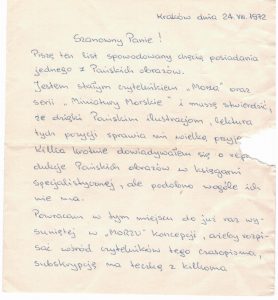 Kraków dnia 24.VII.1972
Szanowny Panie!
Piszę ten list spowodowany chęcią posiadania
jednego z Pańskich obrazów.
Jestem stałym czytelnikiem „Morza" oraz
serii „Miniatury Morskie" i muszę stwierdzić,
że dzięki Pańskim ilustracjom, lektura
tych pozycji sprawia mi wielką
Kilka krotnie dowiadywałem się o
dukcje Pańskich obrazów w księgarni
specjalistycznej, ale podobno wogóle ich
nie ma.
Powracam w tym miejscu do już raz wy-
suniętej w „MORZU" koncepcji, ażeby rozpi-
sać wśród czytelników tego czasopisma,
subskrypcję na teczkę z kilkoma